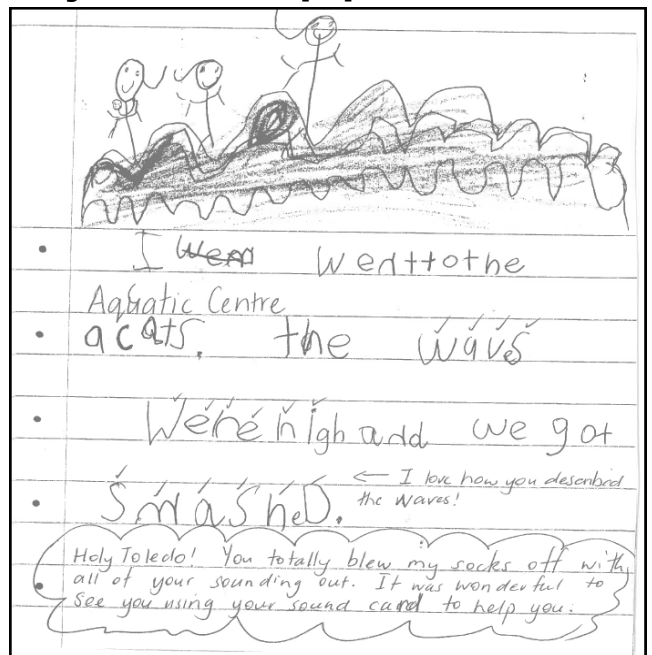 I wen wedttothe
Aquatic Centre
acats. the waves
Were high and we got
SmasheD. ← I love how you described
the waves!
Holy Toledo! You totally blew my socks off with
all of your sounding out. It was wonderful to
see you using your sound card to help you.